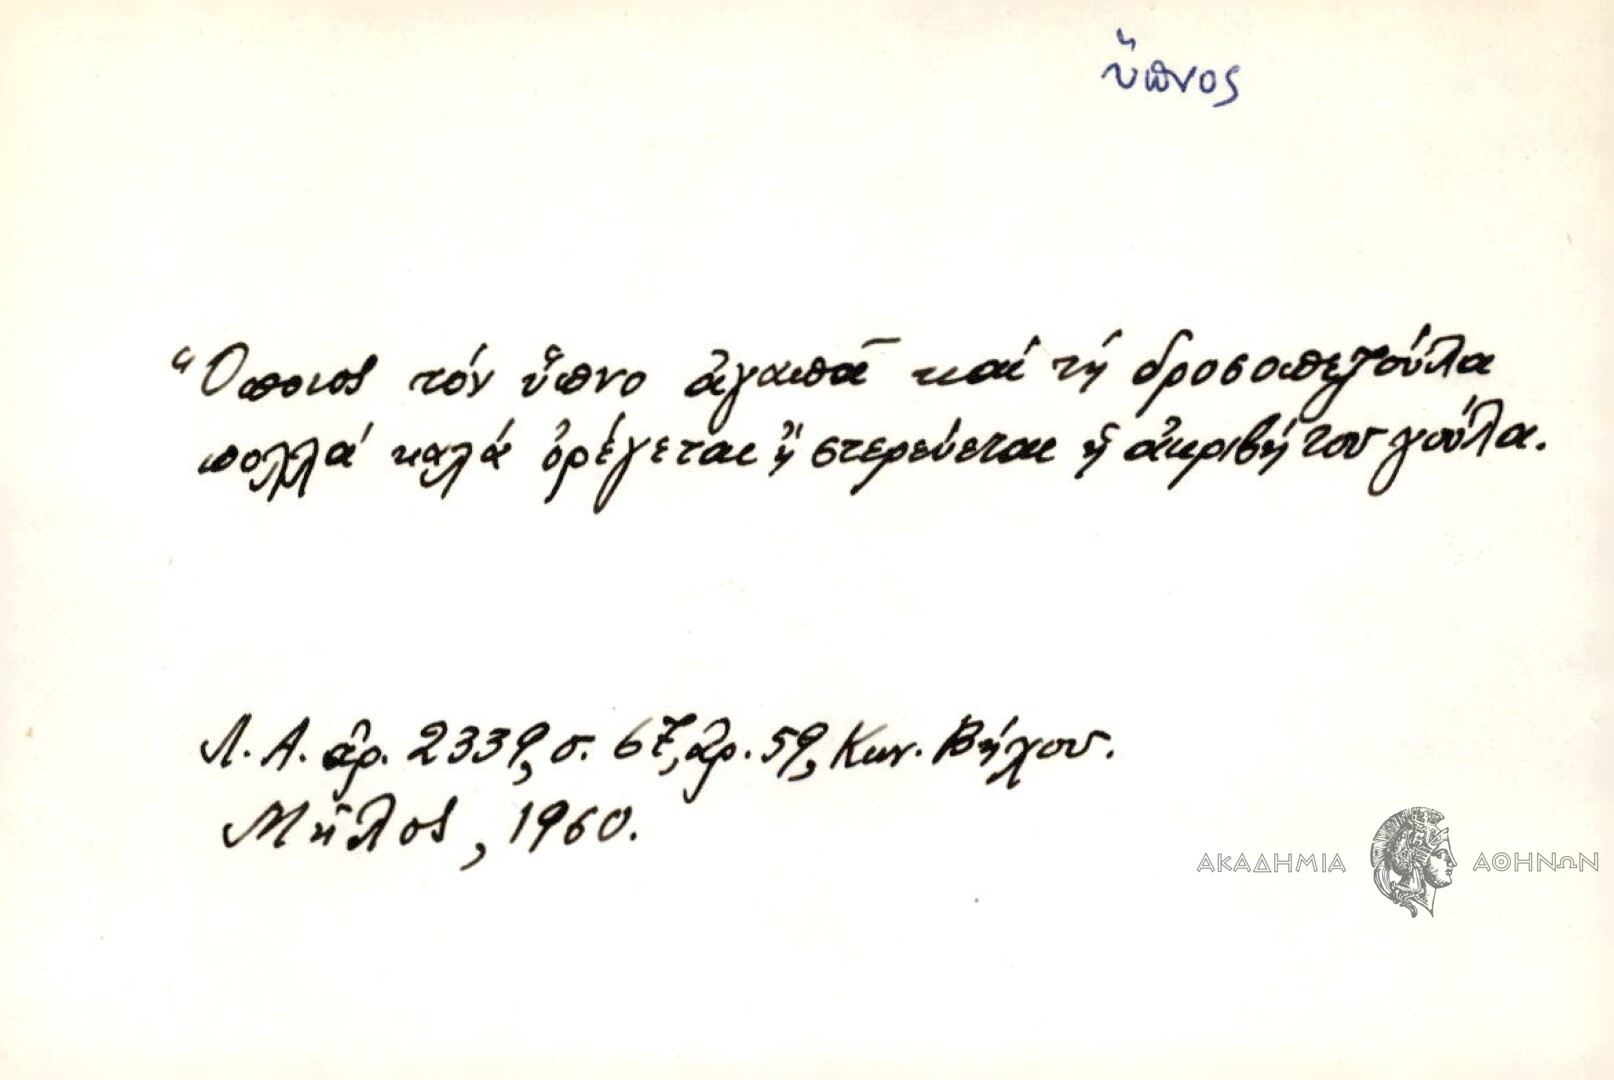 ὕπνος
Ὅποιος τόν ὕπνο ἀγαπᾶ καί τή δροσοπεζούλα
πολλά καλά ὀρέγεται ἤ στερεύεται ἤ ἀκριβή του γούλα.
Λ.Α. ἀρ. 2339, σ. 67, ἀρ. 59, Κων. Βήχου.
Μῆλος, 1960.
ΑΚΑΔΗΜΙΑ ΑΘΗΝΩΝ